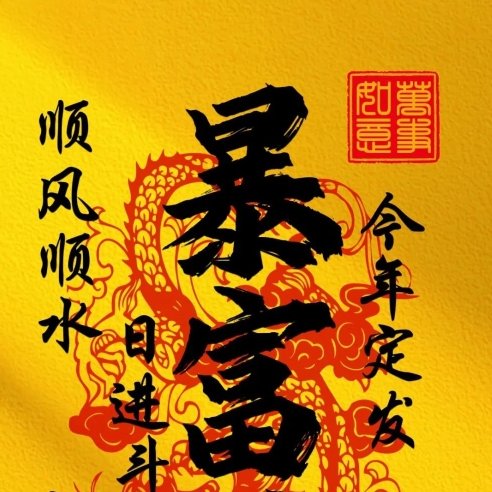 萬事如意
今年定发
暴富
日进斗
顺风顺水